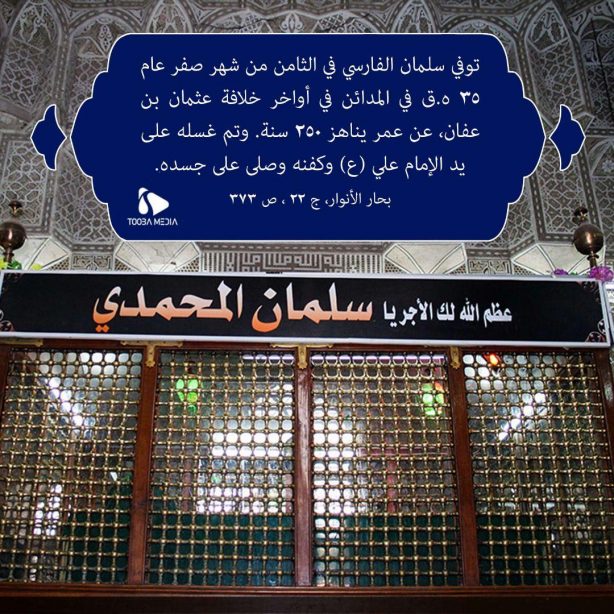 توفي سلمان الفارسي في الثامن من شهر صفر عام
٣٥ ه.ق في المدائن في أواخر خلافة عثمان بن
عفان، عن عمر يناهز ٢٥٠ سنة. وتم غسله على
يد الإمام علي (ع) وكفنه وصلى على جسده.
بحار الأنوار، ج ٢٢ ، ص ٣٧٣
TOOBA MEDIA
عظم الله لك الأجر يا سلمان المحمدي